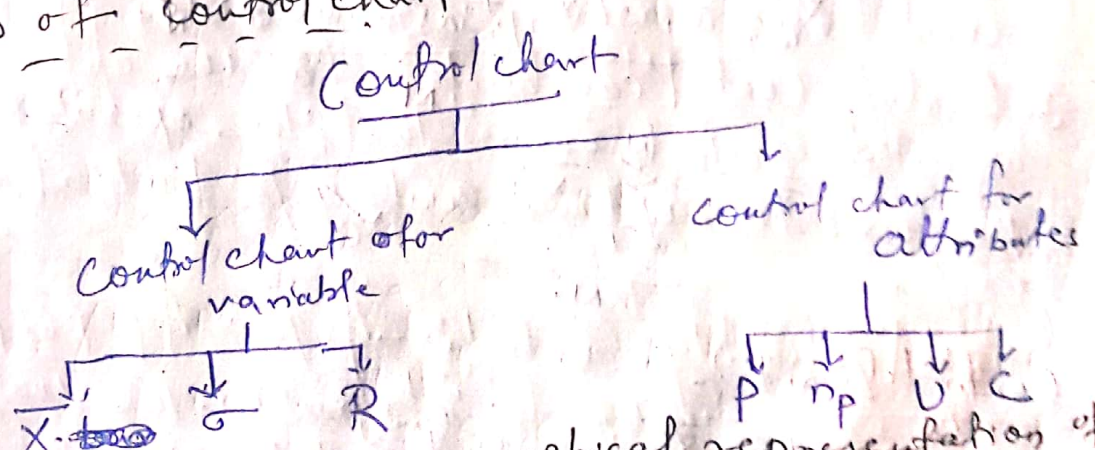 of control chart
Control chart
Control chart for
variable
control chart for
attributes
X̄ σ R
P np U C
representation of